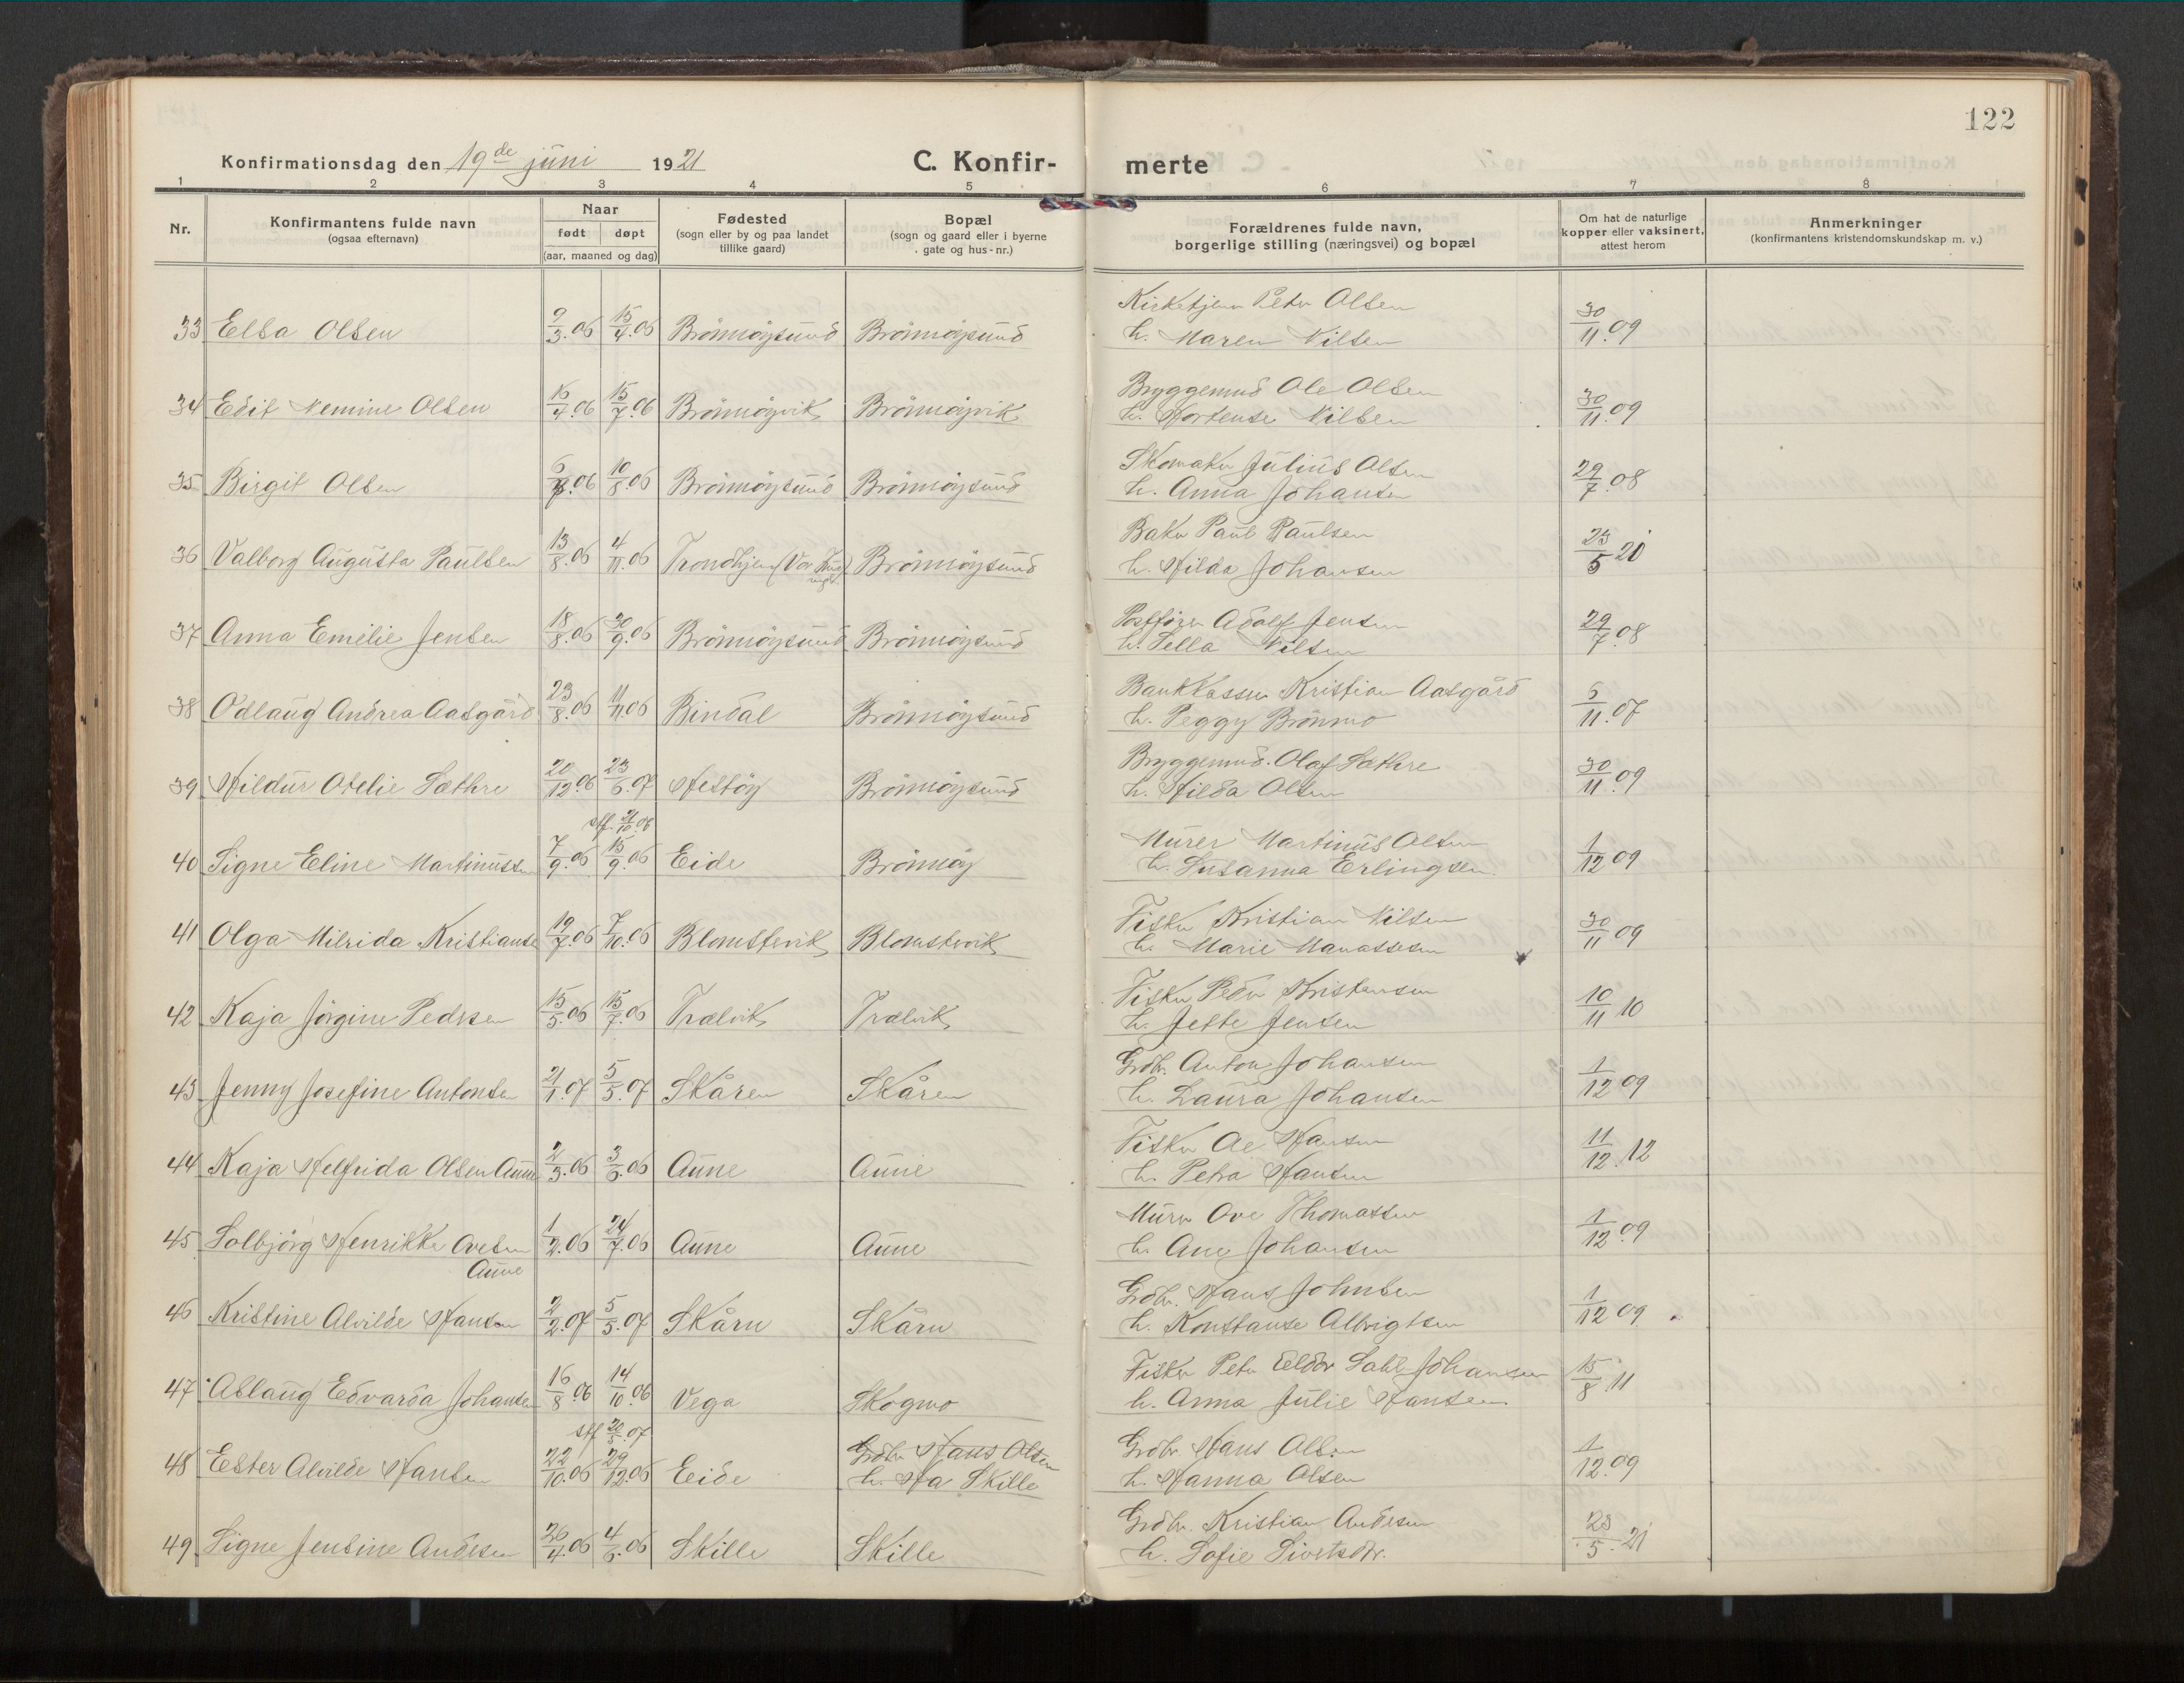 122
Konfirmationsdag den 19de juni 1921 C. Konfir- merte
1 2 3 4 5 6 7 8
Nr. Konfirmantens fulde navn (ogsaa efternavn) Naar født døpt (aar, maaned og dag) Fødested (sogn eller by og paa landet tillike gaard) Bopæl (sogn og gaard eller i byerne gate og hus-nr.) Forældrenes fulde navn, borgerlige stilling (næringsvei) og bopæl Om hat de naturlige kopper eller vaksinert, attest herom Anmerkninger (konfirmantens kristendomskundskap m. v.)
33 Elsa Olsen 9/3.06 15/4.06 Brönnöysund Brönnöysund Kirketjener Peter Olsen 30/11.09
h. Maren Nilsen
34 Edit Nemine Olsen 16/4.06 15/7.06 Brönnöyvik Brönnöyvik Bryggemnd Ole Olsen 30/11.09
h. Hortense Nilsen
35 Birgit Olsen 10/8.06 Brönnöysund Brönnöysund Skomaker Julius Olsen 29/7.08
h. Anna Johansen
36 Valborg Augusta Paulsen 13/8.06 4/11.06 Trondhjem (Vor Brönnöysund Baker Paul Paulsen 23/5 21
h. Hilda Johansen
37 Anna Emilie Jensen 18/8.06 30/9.06 Brönnöysund Brönnöysund Postfører Adolf Jensen 29/7.08
h. Sella Nilsen
38 Odlaug Andrea Aasgård 23/8.06 11/11.06 Bindal Brönnöysund Bankkasser Kristian Aasgård 6/11.07
h. Peggy Brönmo
39 Hildur Otelie Sæthre 20/12.06 23/6.07 Hestöy Brönnöysund Bryggemnd. Olaf Sæthre 30/11.09
h. Hilda Olsen
stf. 21/10.06
40 Signe Eline Martinussen 7/9.06 15/9.06 Eide Brönnöy Murer Martinus Olsen 1/12 09
h. Susanna Erlingsen
41 Olga Milrida Kristianse 19/7.06 7/10.06 Blomstervik Blomstervik Fisker Kristian Nilsen 30/11 09
h. Marie Manassesen
42 Kaja Jörgine Pedersen 15/5.06 15/7.06 Trælvik Trælvik Fisker Peder Kristensen 10/11 10
h. Jette Jensen
43 Jenny Josefine Antonsen 21/1.07 5/5.07 Skåren Skåren Grdbr. Anton Johansen 1/12 09
h. Laura Johansen
44 Kaja Helfrida Olsen Aune 2/3.06 3/6.06 Aune Aune Fisker Hansen 11/12.12
h. Petra Hansen
45 Solbjörg Henrikke Ovesen Aune 1/2.06 24/7.06 Aune Aune Murer Ove Thomassen 1/12 09
h. Ane Johansen
46 Kristine Alvilde Hansen 2/2.07 5/5.07 Skåren Skåren Grdbr. Hans Johnsen 1/12 09
h. Konstanse Albrigtsen
47 Aslaug Edvarda Johansen 16/8 06 14/10.06 Vega Skogmo Fisker Peter Johansen 15/8.11
h. Anna Julie Hansen
stf 20/5.07
48 Ester Alvilde Hansen 22/10.06 29/12.06 Eide Grdbr Hans Olsen Grdbr Hans Olsen 1/12.09
h. Ha Skille h. Hanna Olsen
49 Signe Jensine Andersen 26/4.06 4/6.06 Skille Skille Grdbr. Kristian Andersen 23/5.21
h. Sofie Sivertsdtr.